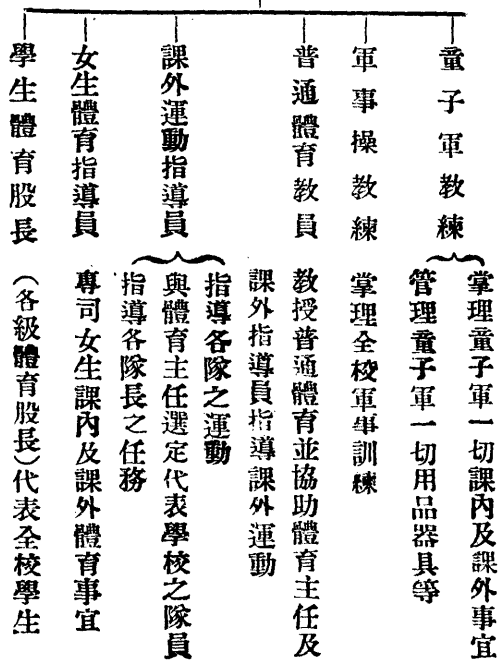 童子軍教練
掌理童子軍一切課內及課外事宜
管理童子軍一切用品器具等
軍事操教練
掌理全校軍事訓練
普通體育教員
教授普通體育並協助體育主任及
課外指導員指導課外運動
課外運動指導員
指導各隊之運動
與體育主任選定代表學校之隊員
指導各隊長之任務
女生體育指導員
專司女生課內及課外體育事宜
學生體育股長
(各級體育股長)代表全校學生